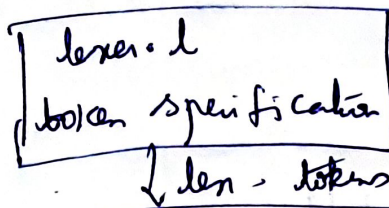 lexer.l
token specification
↓ lex. tokens